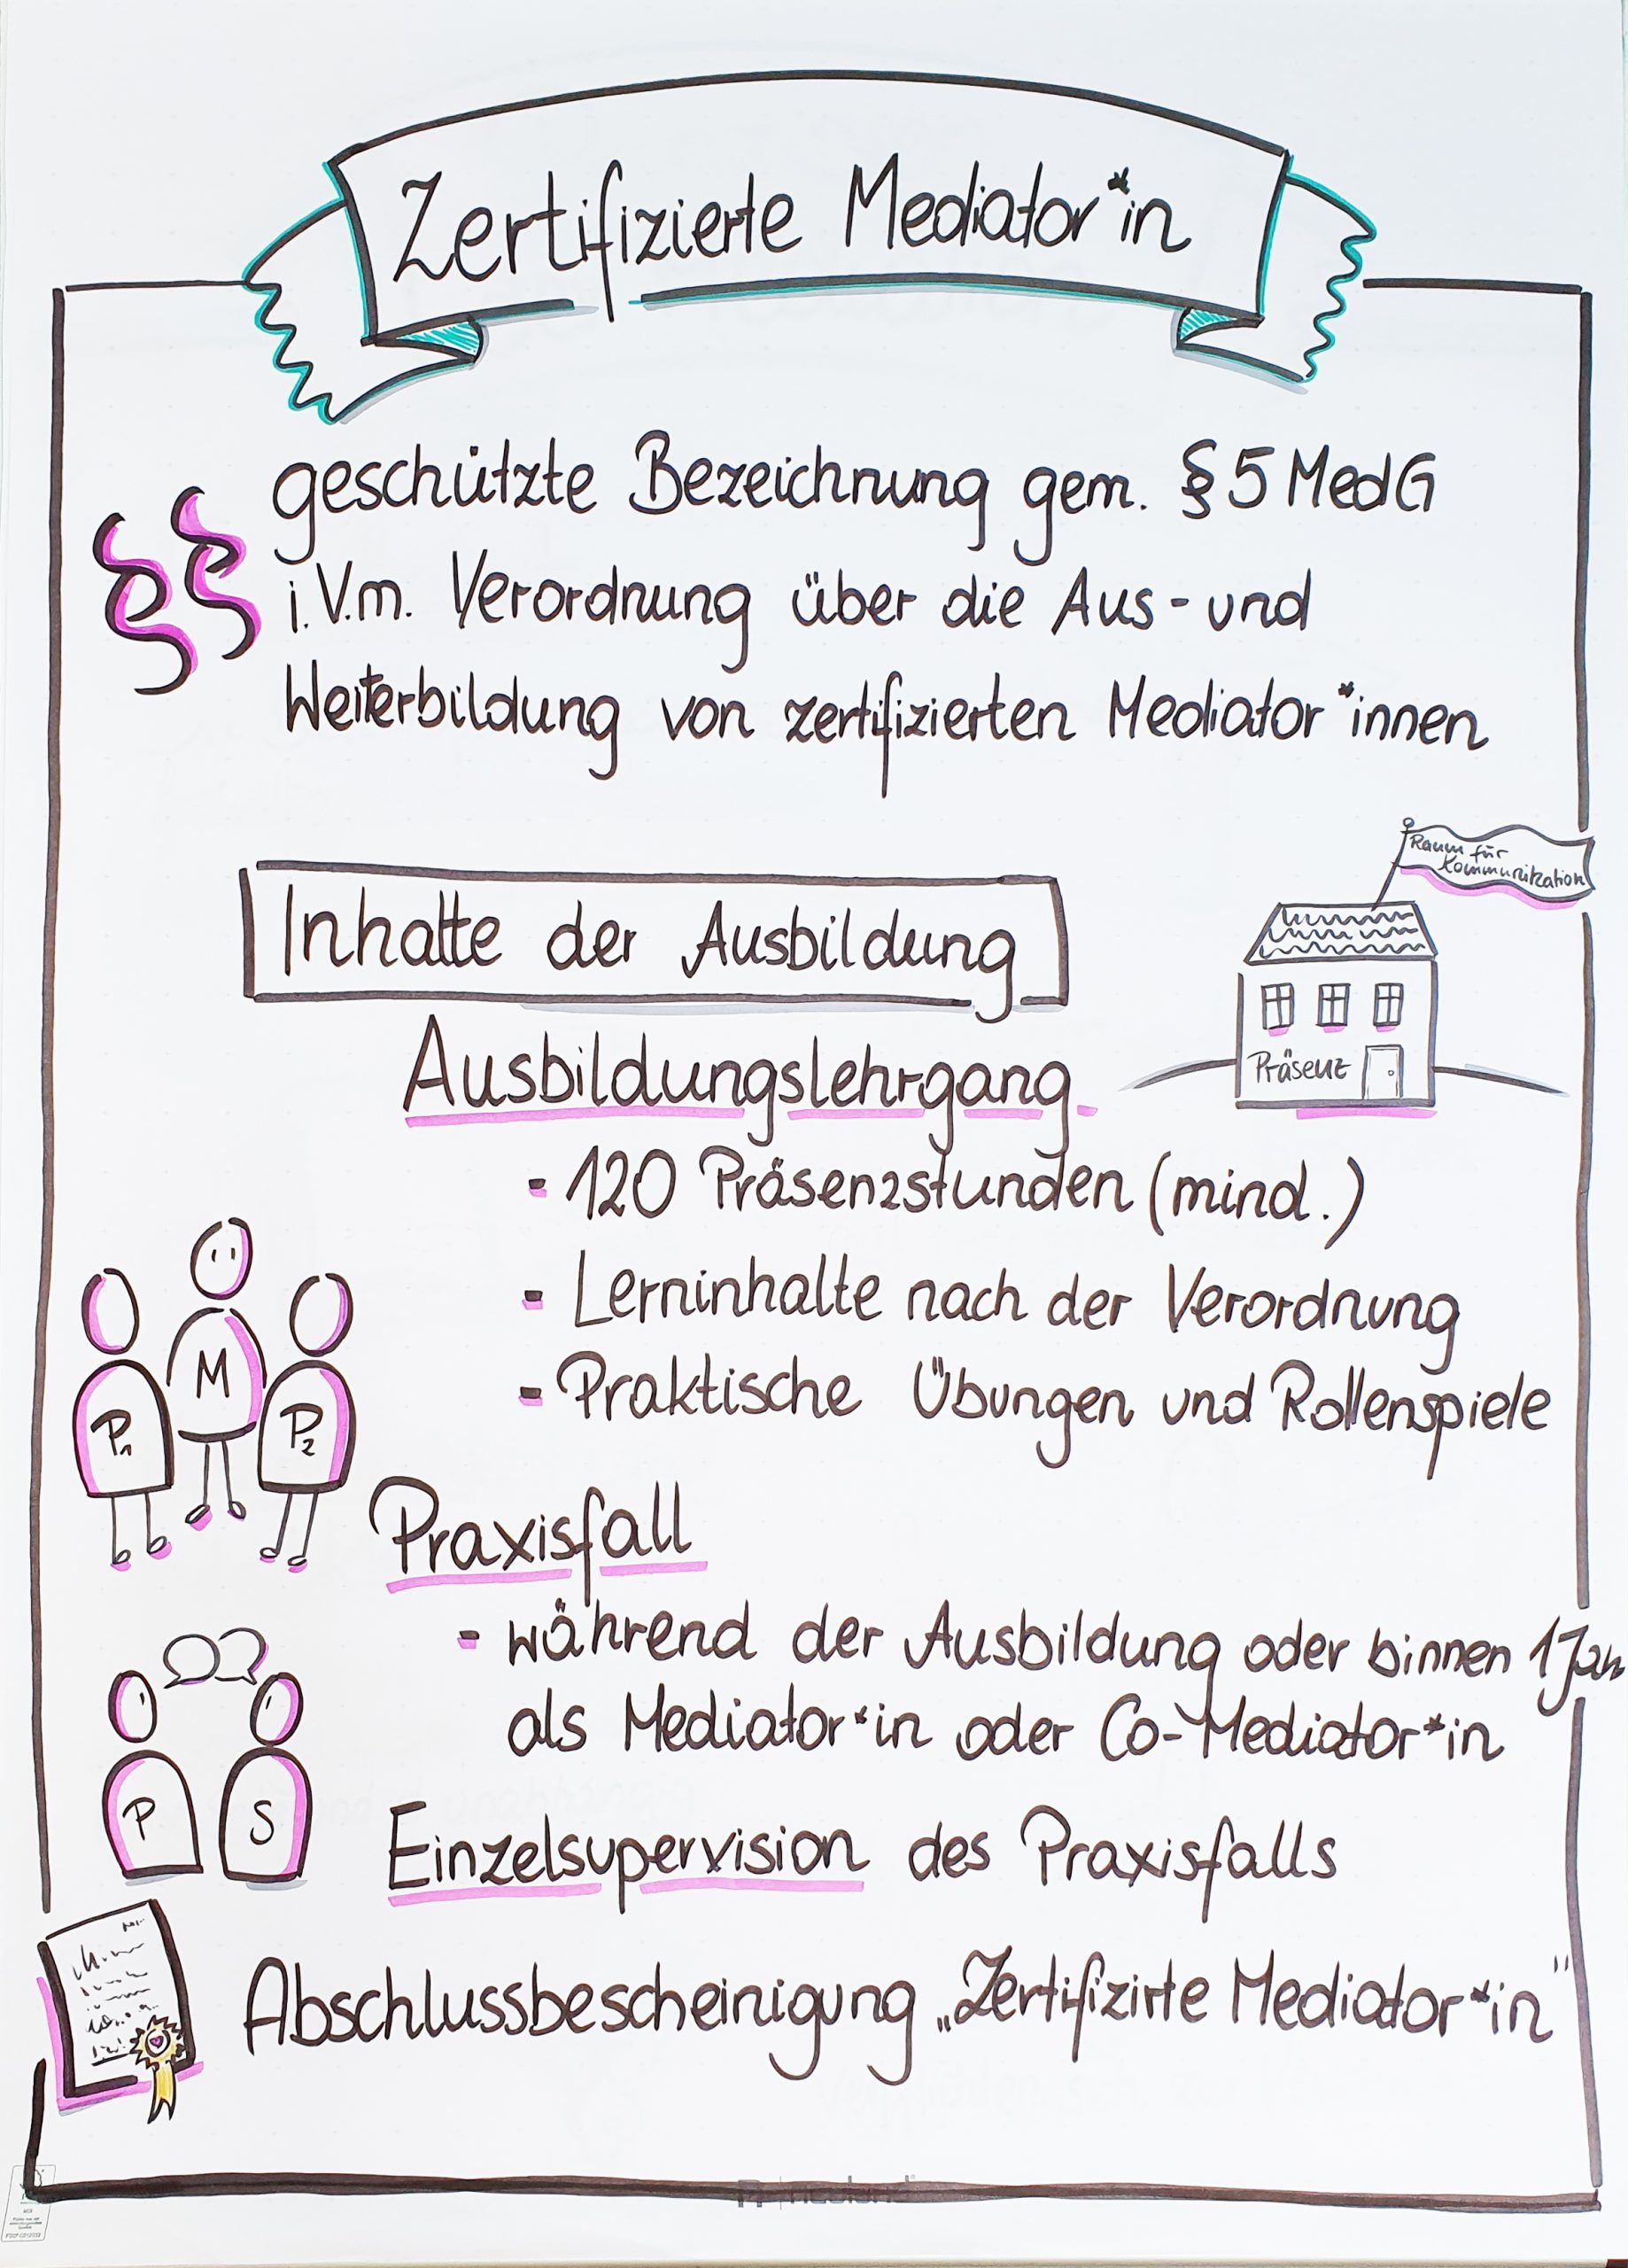 Zertifizierte Mediator*in
§§
geschützte Bezeichnung gem. § 5 MedG
i.V.m. Verordnung über die Aus- und
Weiterbildung von zertifizierten Mediator*innen
Raum für
Kommunikation
Inhalte der Ausbildung
Präsenz
Ausbildungslehrgang
- 120 Präsenzstunden (mind.)
- Lerninhalte nach der Verordnung
- Praktische Übungen und Rollenspiele
M
P1
P2
Praxisfall
- während der Ausbildung oder binnen 1 Jahr
als Mediator*in oder Co-Mediator*in
P
S
Einzelsupervision des Praxisfalls
Abschlussbescheinigung „Zertifizirte Mediator*in"